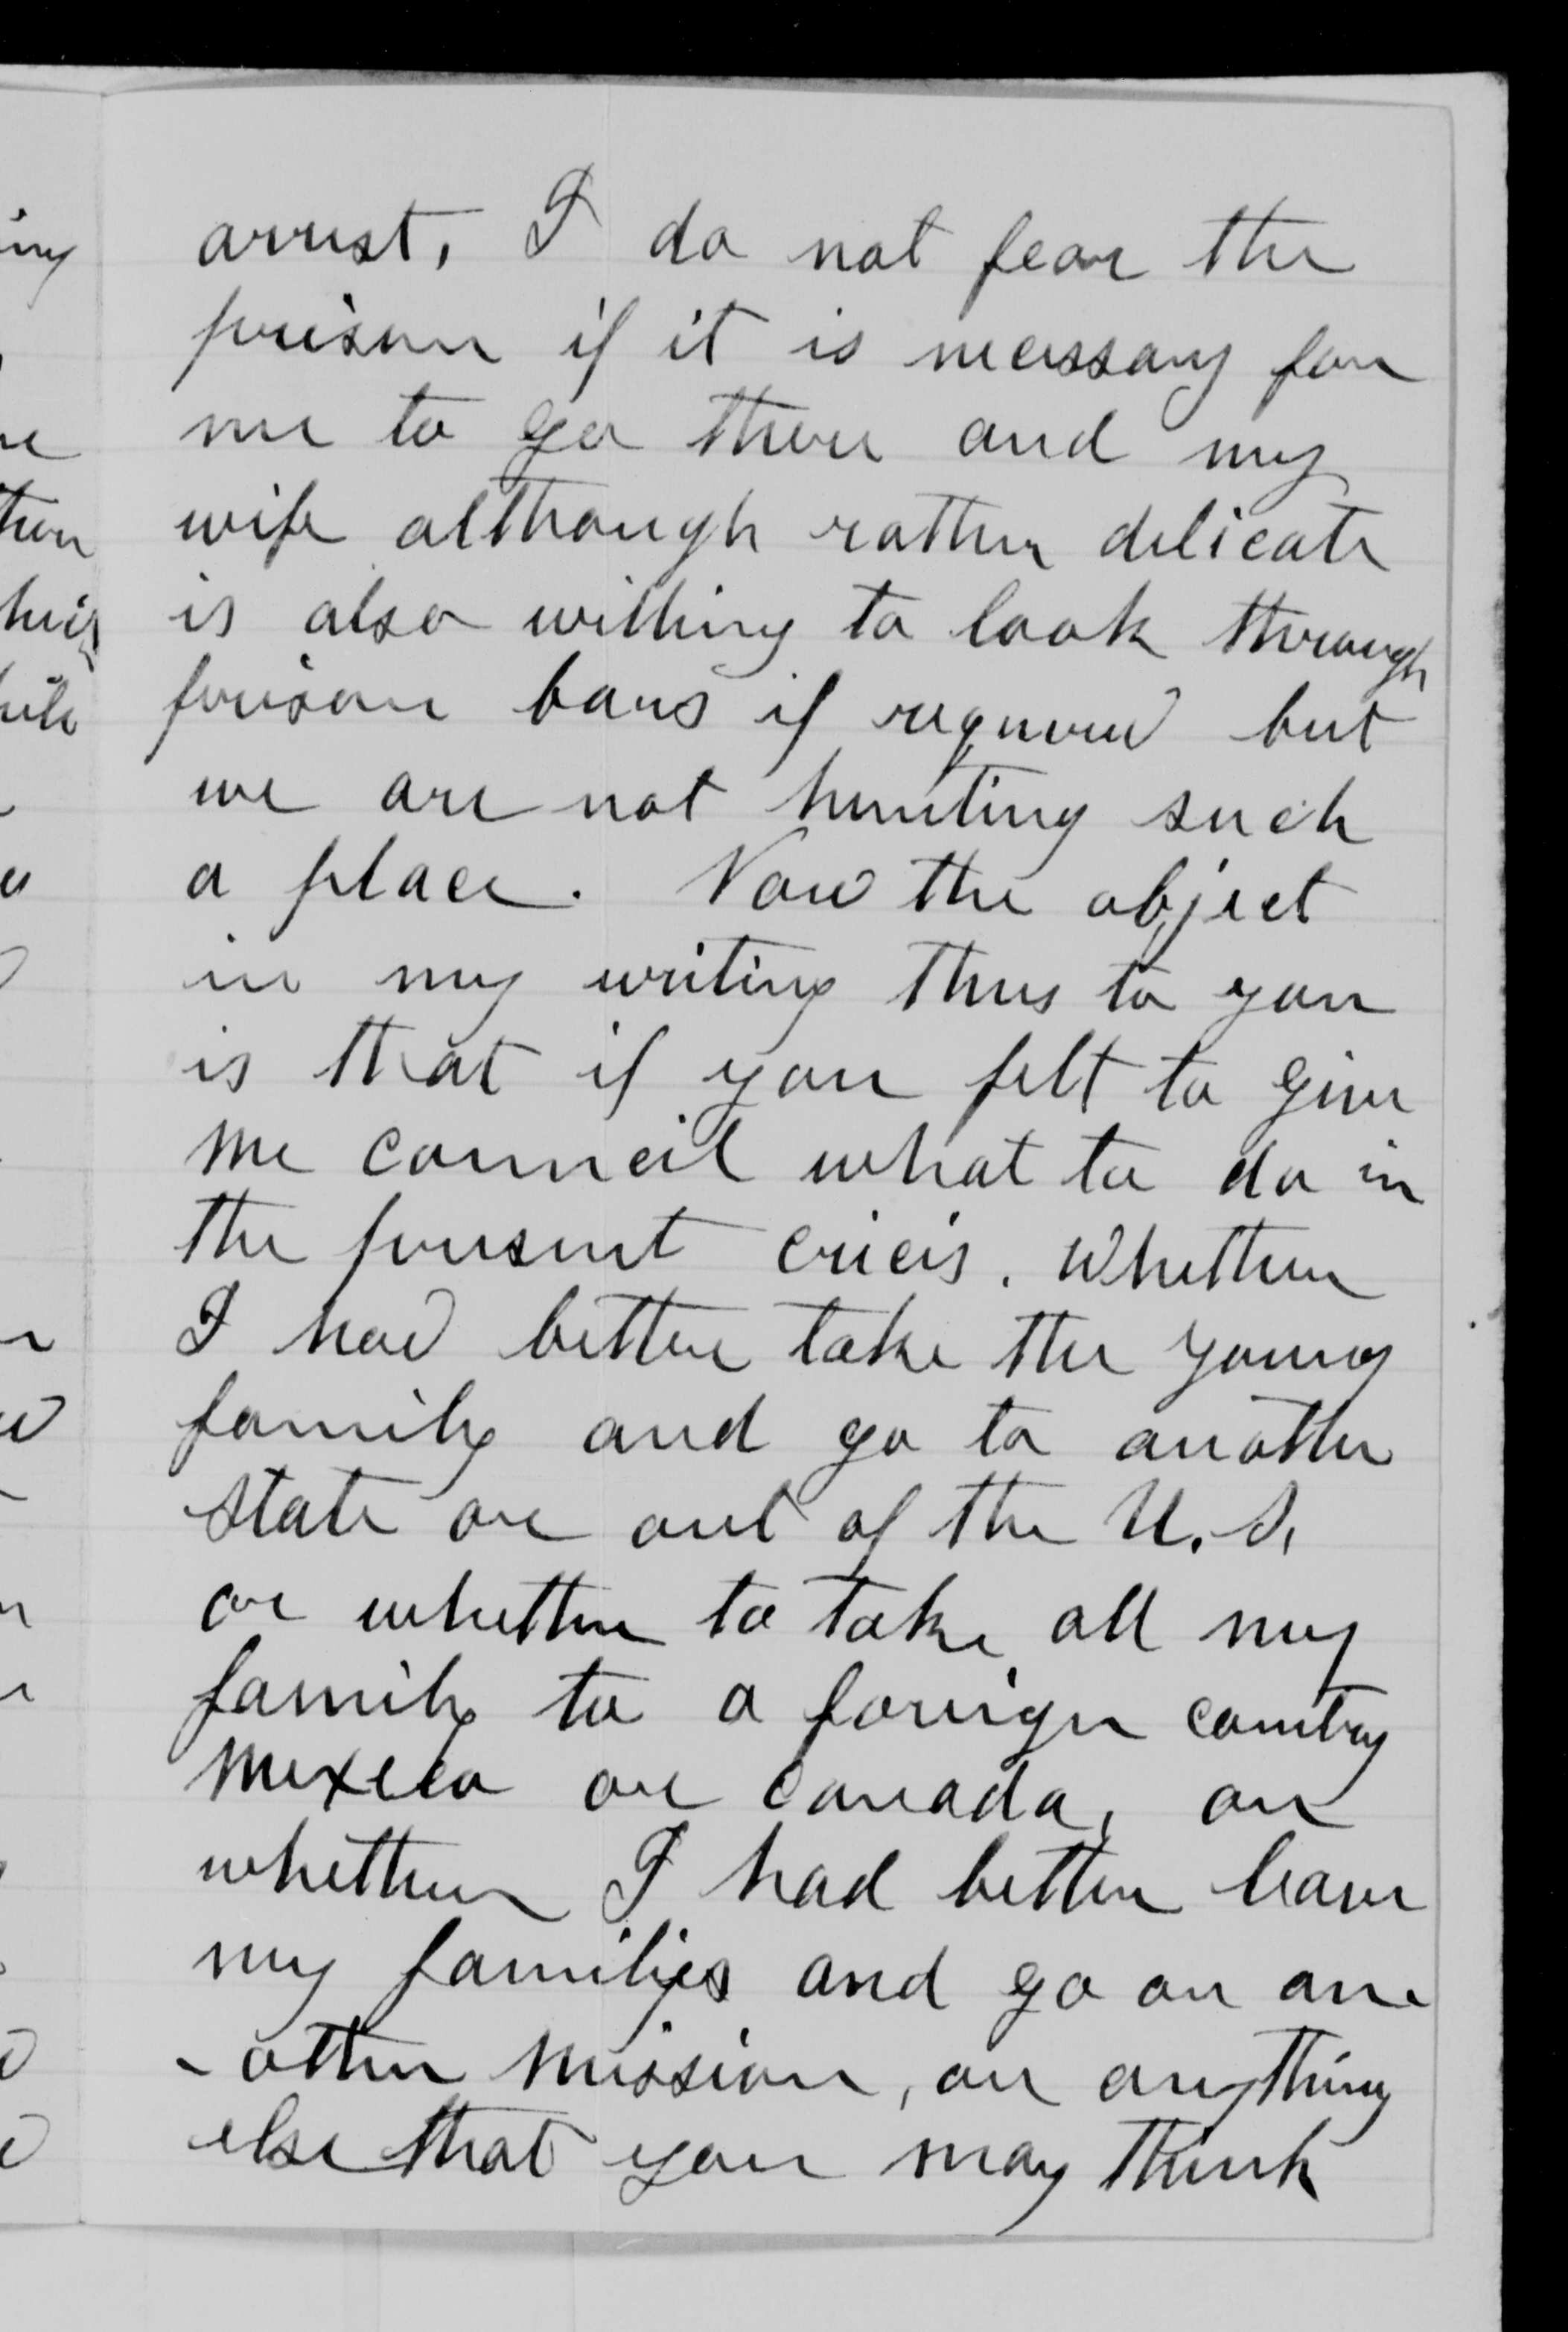 arrest, I do not fear the
prison if it is necessary for
me to go there and my
wife although rather delicate
is also willing to look through
prison bars if required but
we are not hunting such
a place. Now the object
in my writing thus to you
is that if you felt to give
me council what to do in
the present cricis. Whether
I had better take the young
family and go to another
state or out of the U.S,
or whether to take all my
family to a foreign country
Mexeco or Canada, or
whether I had better leave
my families and go on an-
-other mission, or anything
else that you may think